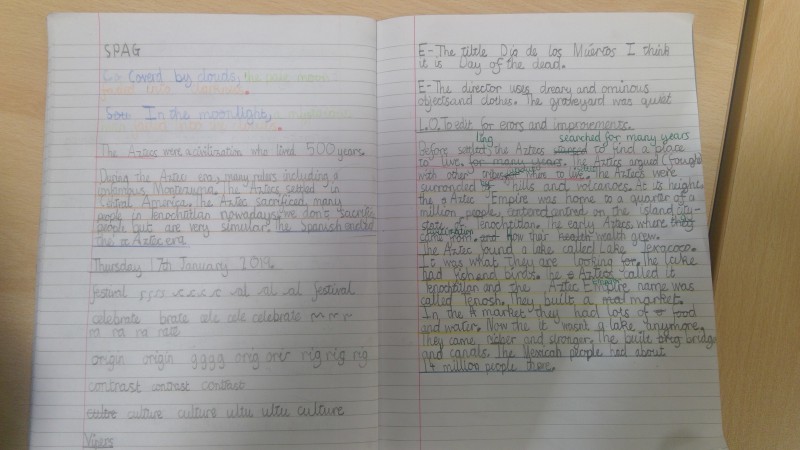 SPAG
Covered by clouds, the pale moon
In the moonlight,
The Aztecs were a civilization who lived 500 years.
During the Aztec era, many rulers including a
Montezuma. The Aztec settled in
Central America. The Aztec sacrificed many
people in Tenochtitlan nowadays we don't sacrifice
people but are very simular. The Spanish ended
the Aztec era
Thursday 17th January 2019
festival al al al festival
celebrate brate cele cele celebrate
ra ra ra rate
origin origin gggg orig orig rig rig rig
contrast contrast contract
culture culture culture ultu ultu culture
Vipers
E-The tiltle Dio de los Muertos I think
it is Day of the dead.
E-The director uses dreary and ominous
objectsand clothes. The graveyard was quiet
L.O.To edit for errors and improvements.
ling searched for many years
Before settel, the Aztecs to find a place
to live. for many years. The Aztecs argued (fought
with other tribes there to live. The Aztecs were
surronded hills and volcanoes. At its height,
the Aztec Empire was home to a quarter of a
million people, centred on the island city-
state of Tenochtitlan. The early Aztecs, where they
came from. and how their health grew.
The Aztec found a lake called Lake Texacoco.
It was what they are looking for. The lake
had fish and birds. The Aztecs called it
Tenochtitlan and the Aztec Empire name was
called Tenosh. They built a market.
In the market they had lots of food
and water. Now the it wasn't a lake anymore.
They came richer and stronger. The built bridge
and canals. The Mexicah people had about
14 million people there.